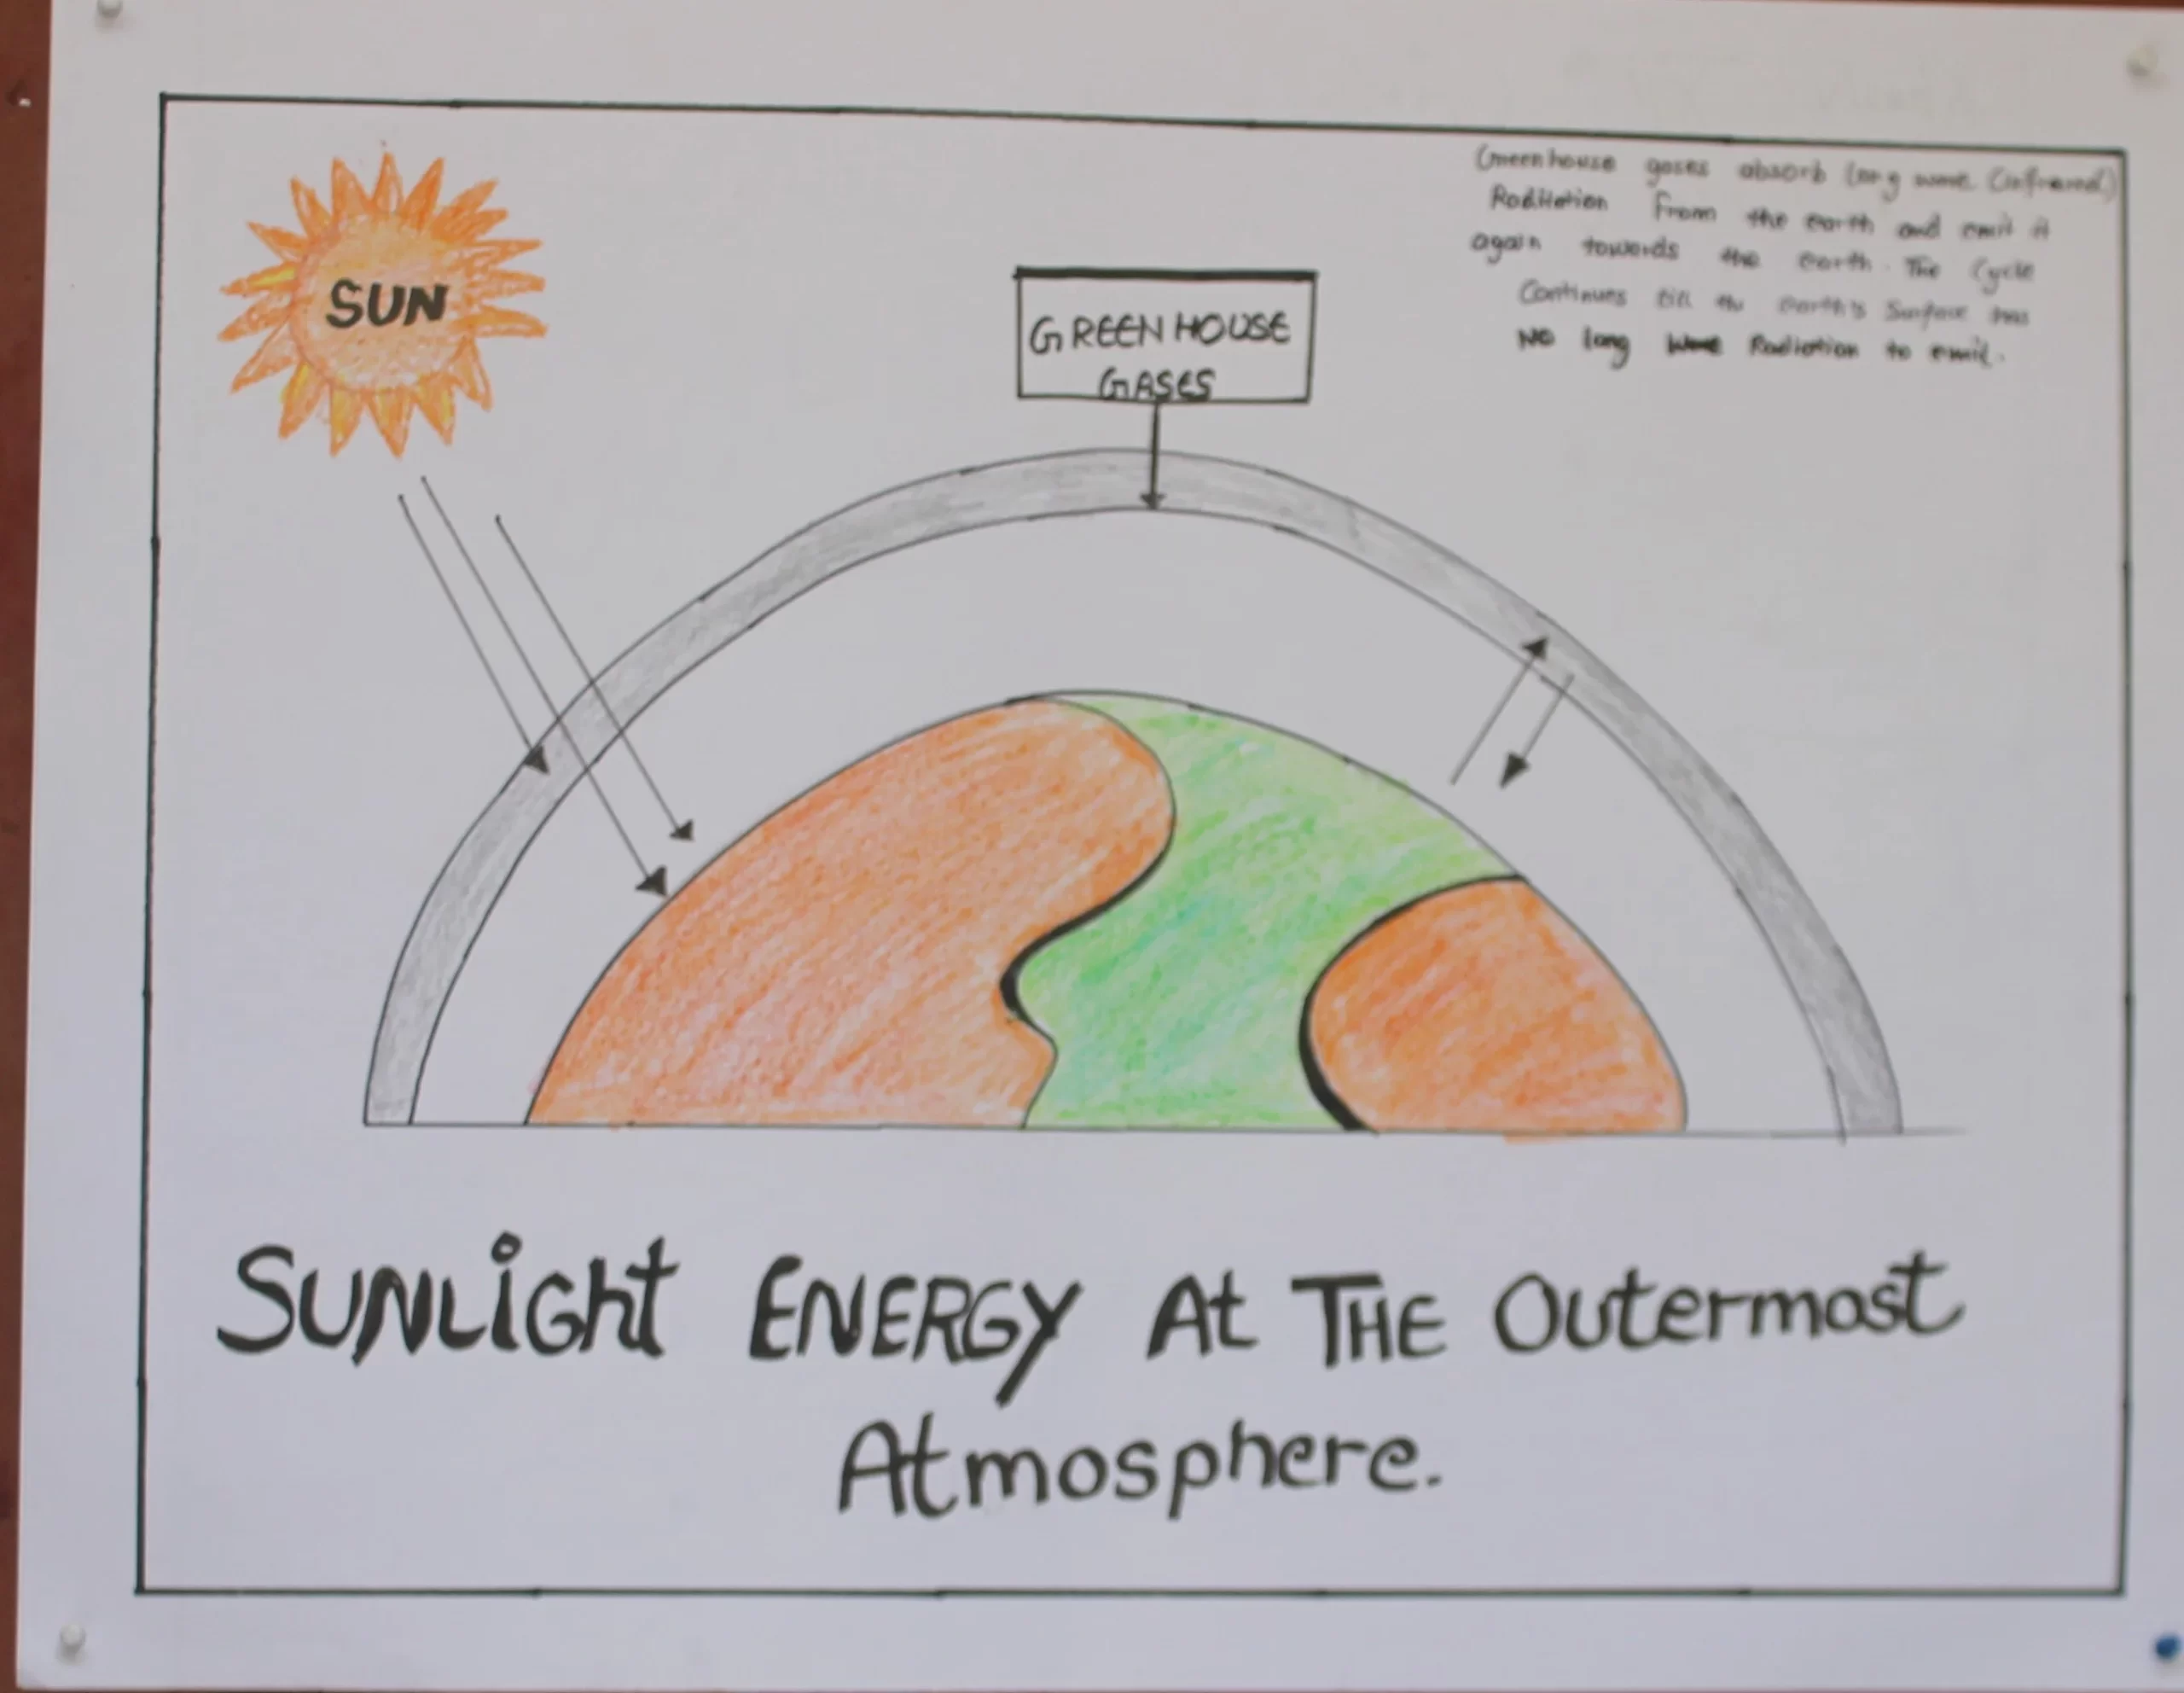 SUN
Greenhouse gases absorb long wave (infrared)
Radiation from the earth and emit it
again towards the earth. The Cycle
Continues till the earth's Surface has
No long Wave Radiation to emit.
GREEN HOUSE
GASES
SUNLiGht ENERGY At THE Outermost
Atmosphere.